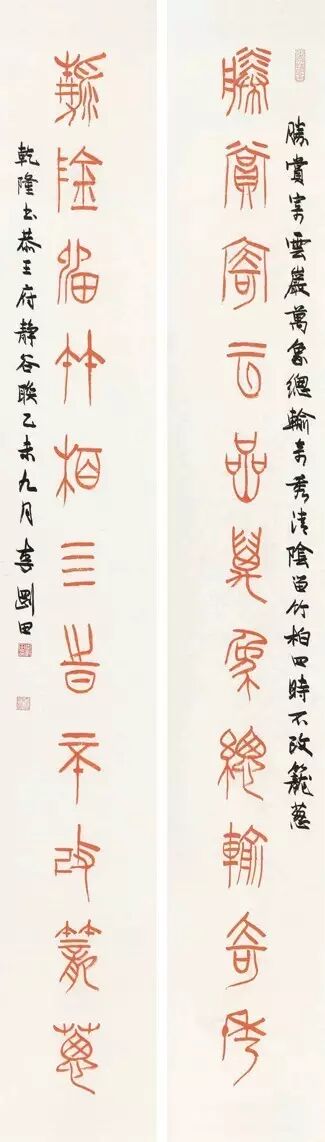 勝賞寄雲巖萬象總輸奇秀清陰留竹柏四時不改籠蔥
勝賞寄云嵒萬象總輸奇秀
清陰留竹柏四時不改籠蔥
乾隆書恭王府静谷聯乙未九月李剛田